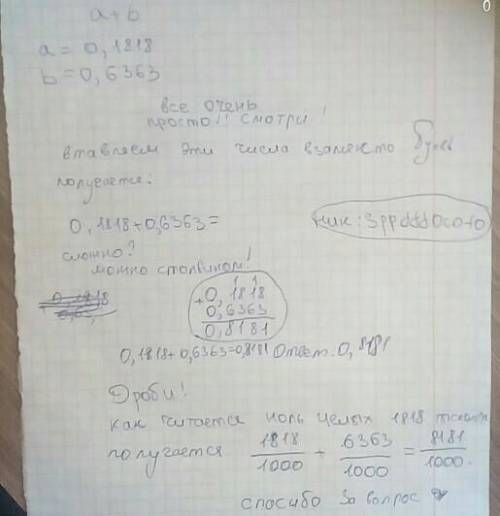 a+b
a = 0,1818
b = 0,6363
все очень
просто!! смотри!
втавляем эти числа взаместо букв
получается:
0,1818+0,6363=
ник: 3ppddd0co+0
сложно?
можно столбиком!
0,1818
+0,1818
0,6363
0,8181
0,1818+0,6363=0,8181 Ответ: 0,8181
Дроби!
как читается ноль целых 1818
получается 1818/1000 + 6363/1000 = 8181/1000.
спосибо за вопрос